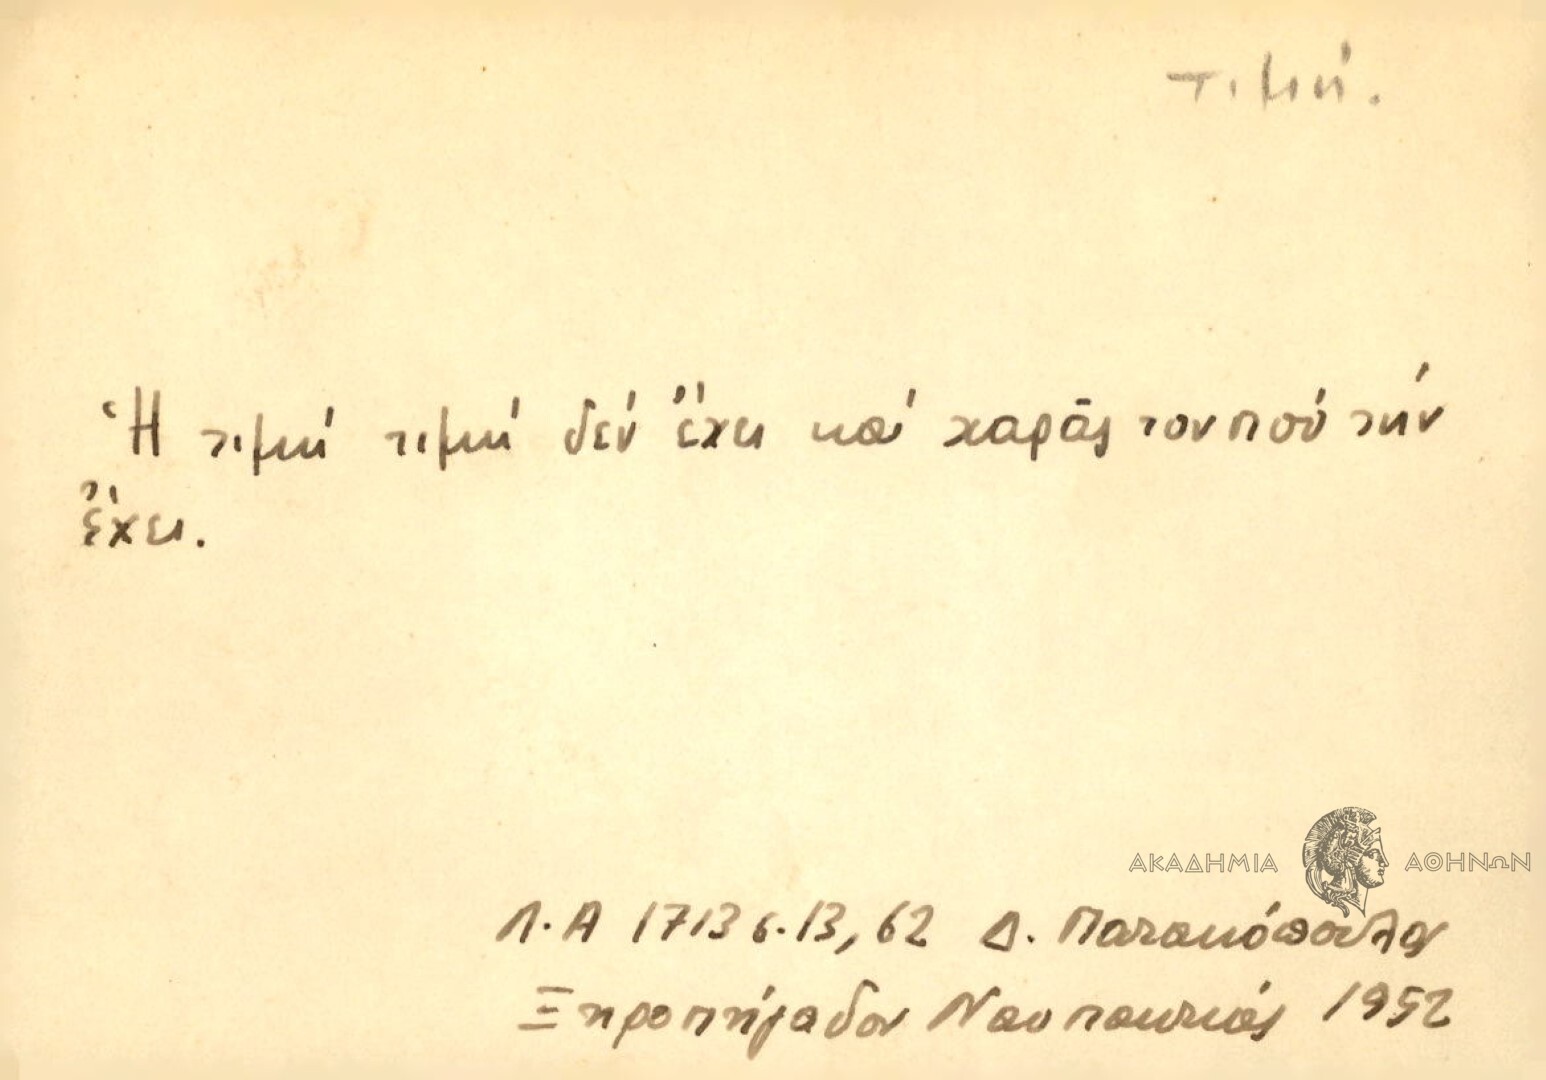 τιμή.
Ἡ τιμή τιμή δέν ἔχει καί χαρᾶς τον πού τήν
ἔχει.
ΑΚΑΔΗΜΙΑ ΑΘΗΝΩΝ
Λ.Α 1713 σ. 13, 62 Δ.
Ξηροπήγαδον Ναυπακτίας 1952